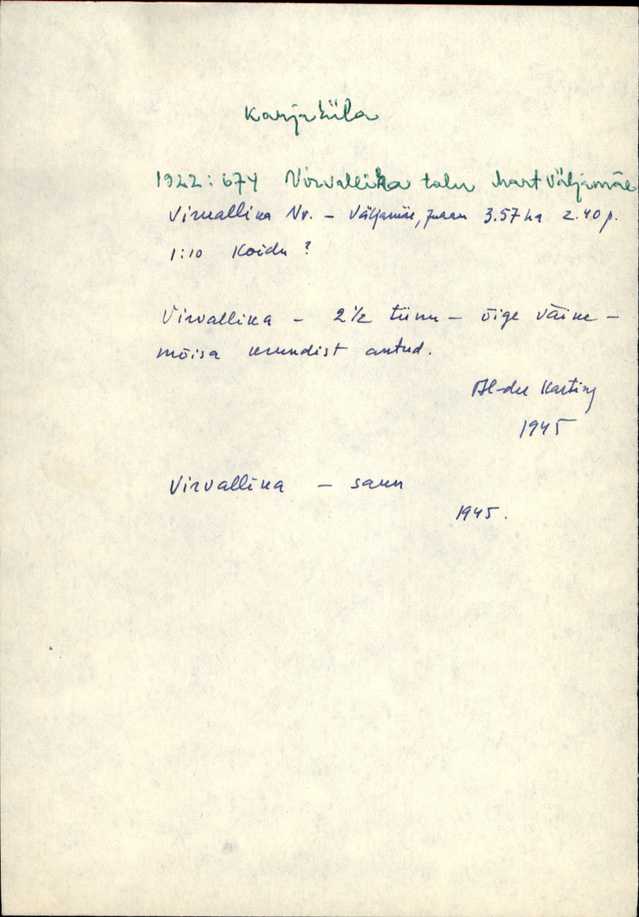 Karjaküla
1922: 674 Virvallika talu Mart Väljamäe
Virvallika Nr. – Väljamäe, Juaan 3.57 ha 2.40 p.
1:10 Koidu ?
Virvallika – 2 1/2 tiinu – õige väike –
mõisa krundist antud.
Al-der Karting
1945
Virvallika – saun
1945.